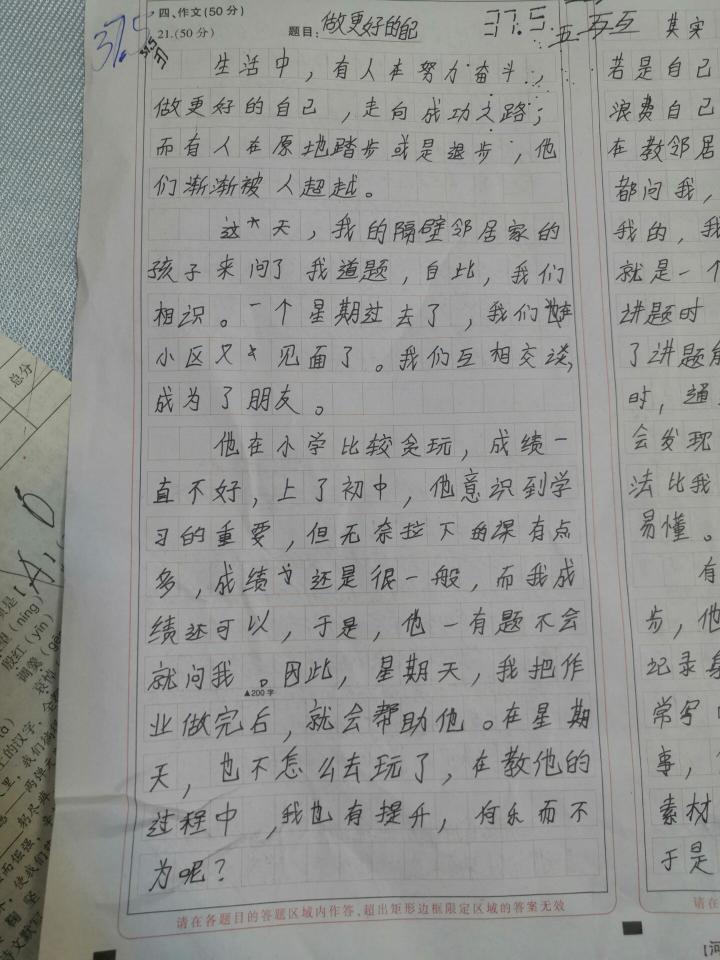 四、作文(50分)
21.(50分)
题目：做更好的自己
37.5
37.5
37.5
五
生活中，有人在努力奋斗，
做更好的自己，走向成功之路；
而有人在原地踏步或是退步，他
们渐渐被人超越。
这天，我的隔壁邻居家的
孩子来问了我道题，自此，我们
相识。一个星期过去了，我们在
小区又见面了。我们互相交谈，
成为了朋友。
他在小学比较贪玩，成绩一
直不好，上了初中，他意识到学
习的重要，但无奈拉下的课有点
多，成绩还是很一般，而我成
绩还可以，于是，他一有题不会
就问我。因此，星期天，我把作
▲200字
业做完后，就会帮助他。在星期
天，也不怎么去玩了，在教他的
过程中，我也有提升，何乐而不
为呢？
请在各题目的答题区域内作答，超出矩形边框限定区域的答案无效
其实
若是自己
浪费自己
在教邻居
都问我，
我的，我
就是一个
讲题时
了讲题
时，通
会发现
法比我
易懂。
有
步，他
记录
常写
事，
素材
于是
请在
总分
(níng)
殷红(yīn)
调羹